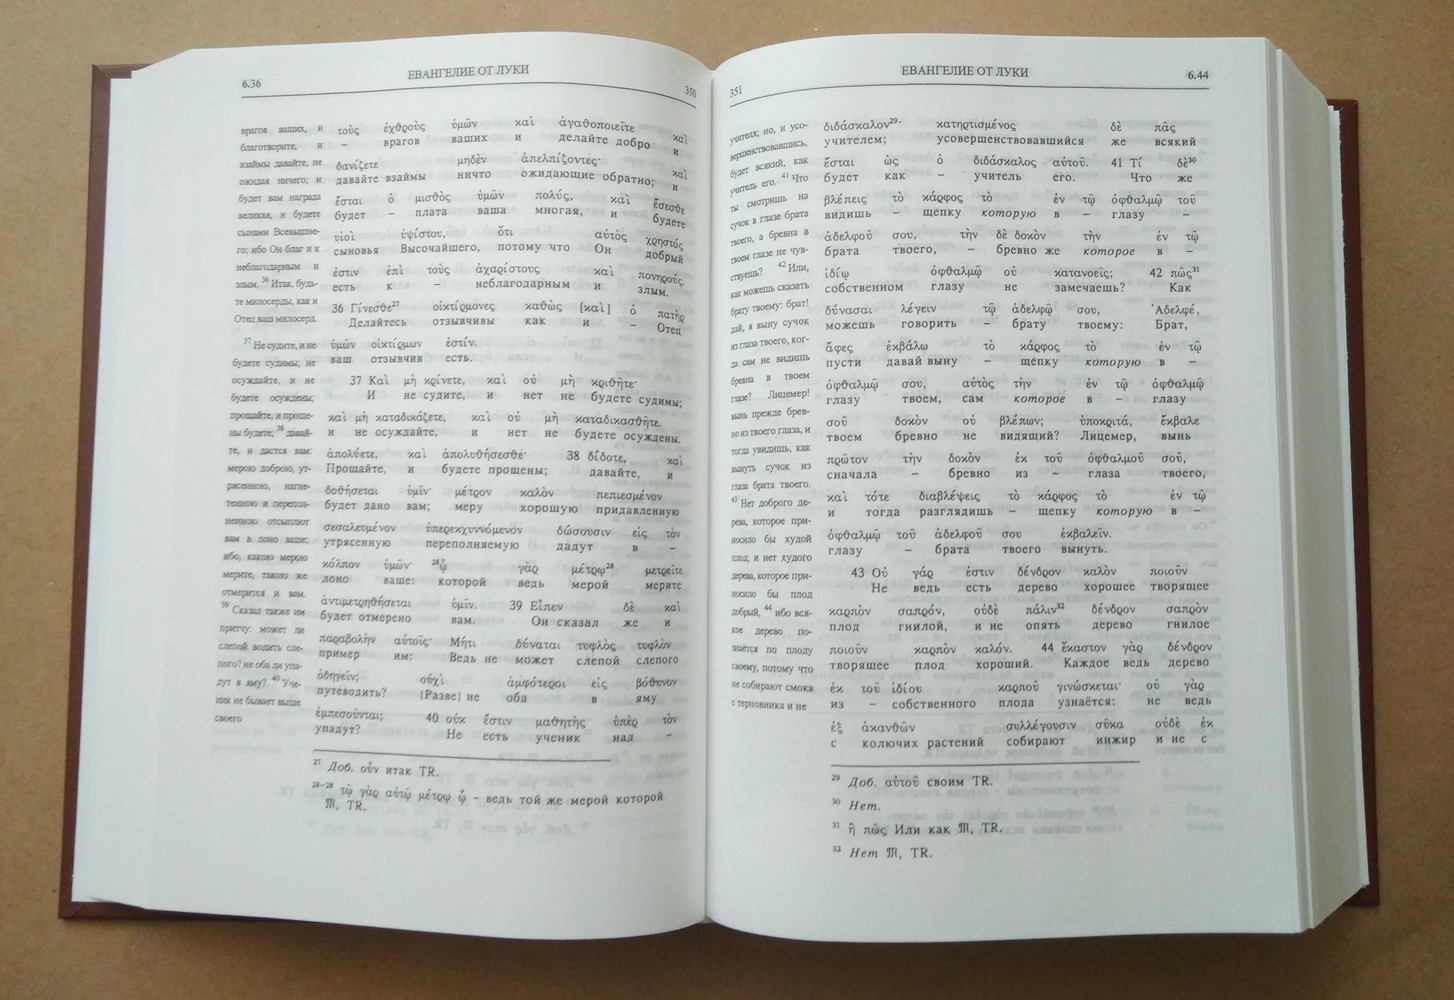 6.36 ЕВАНГЕЛИЕ ОТ ЛУКИ 350
врагов ваших, и
благотворите, и
взаймы давайте, не
ожидая ничего; и
будет вам награда
великая, и будете
сынами Всевышне-
го; ибо Он благ и к
неблагодарным и
злым. 36 Итак, будь-
те милосерды, как и
Отец ваш милосерд.
37 Не судите, и не
будете судимы; не
осуждайте, и не
будете осуждены;
прощайте, и проще-
ны будете; 38 давай-
те, и дастся вам:
мерою доброю, ут-
рясенною, нагне-
тенною и перепол-
ненною отсыплют
вам в лоно ваше;
ибо, какою мерою
мерите, такою же
отмерится и вам.
39 Сказал также им
притчу: может ли
слепой водить сле-
пого? не оба ли упа-
дут в яму? 40 Уче-
ник не бывает выше
своего
τοὺς ἐχθροὺς ὑμῶν καὶ ἀγαθοποιεῖτε καὶ
– врагов ваших и делайте добро и
δανίζετε μηδὲν ἀπελπίζοντες· καὶ
давайте взаймы ничто ожидающие обратно; и
ἔσται ὁ μισθὸς ὑμῶν πολύς, καὶ ἔσεσθε
будет – плата ваша многая, и будете
υἱοὶ ὑψίστου, ὅτι αὐτὸς χρηστός
сыновья Высочайшего, потому что Он добрый
ἐστιν ἐπὶ τοὺς ἀχαρίστους καὶ πονηρούς.
есть к – неблагодарным и злым.
36 Γίνεσθε27 οἰκτίρμονες καθὼς [καὶ] ὁ πατὴρ
Делайтесь отзывчивы как и – Отец
ὑμῶν οἰκτίρμων ἐστίν.
ваш отзывчив есть.
37 Καὶ μὴ κρίνετε, καὶ οὐ μὴ κριθῆτε·
И не судите, и нет не будете судимы;
καὶ μὴ καταδικάζετε, καὶ οὐ μὴ καταδικασθῆτε.
и не осуждайте, и нет не будете осуждены.
ἀπολύετε, καὶ ἀπολυθήσεσθε· 38 δίδοτε, καὶ
Прощайте, и будете прощены; давайте, и
δοθήσεται ὑμῖν· μέτρον καλὸν πεπιεσμένον
будет дано вам; меру хорошую придавленную
σεσαλευμένον ὑπερεκχυννόμενον δώσουσιν εἰς τὸν
утрясенную переполняемую дадут в –
κόλπον ὑμῶν· 28ᾧ γὰρ μέτρῳ28 μετρεῖτε
лоно ваше: которой ведь мерой мерите
ἀντιμετρηθήσεται ὑμῖν. 39 Εἶπεν δὲ καὶ
будет отмерено вам. Он сказал же и
παραβολὴν αὐτοῖς· Μήτι δύναται τυφλὸς τυφλὸν
пример им: Ведь не может слепой слепого
ὁδηγεῖν; οὐχὶ ἀμφότεροι εἰς βόθυνον
путеводить? [Разве] не оба в яму
ἐμπεσοῦνται; 40 οὐκ ἔστιν μαθητὴς ὑπὲρ τὸν
упадут? Не есть ученик над –
27 Доб. οὖν итак TR.
28–28 τῷ γὰρ αὐτῷ μέτρῳ ᾧ – ведь той же мерой которой
𝔐, TR.
351 ЕВАНГЕЛИЕ ОТ ЛУКИ 6.44
учителя; но, и усо-
вершенствовавшись,
будет всякий, как
учитель его. 41 Что
ты смотришь на
сучок в глазе брата
твоего, а бревна в
твоем глазе не чув-
ствуешь? 42 Или,
как можешь сказать
брату твоему: брат!
дай, я выну сучок
из глаза твоего, ког-
да сам не видишь
бревна в твоем
глазе? Лицемер!
вынь прежде брев-
но из твоего глаза, и
тогда увидишь, как
вынуть сучок из
глаза брата твоего.
43 Нет доброго де-
рева, которое при-
носило бы худой
плод; и нет худого
дерева, которое при-
носило бы плод
добрый, 44 ибо вся-
кое дерево по-
знаётся по плоду
своему, потому что
не собирают смокв
с терновника и не
διδάσκαλον29· κατηρτισμένος δὲ πᾶς
учителем; усовершенствовавшийся же всякий
ἔσται ὡς ὁ διδάσκαλος αὐτοῦ. 41 Τί δὲ30
будет как – учитель его. Что же
βλέπεις τὸ κάρφος τὸ ἐν τῷ ὀφθαλμῷ τοῦ
видишь – щепку которую в – глазу –
ἀδελφοῦ σου, τὴν δὲ δοκὸν τὴν ἐν τῷ
брата твоего, – бревно же которое в –
ἰδίῳ ὀφθαλμῷ οὐ κατανοεῖς; 42 πῶς31
собственном глазу не замечаешь? Как
δύνασαι λέγειν τῷ ἀδελφῷ σου, Ἀδελφέ,
можешь говорить – брату твоему: Брат,
ἄφες ἐκβάλω τὸ κάρφος τὸ ἐν τῷ
пусти давай выну – щепку которую в –
ὀφθαλμῷ σου, αὐτὸς τὴν ἐν τῷ ὀφθαλμῷ
глазу твоем, сам которое в – глазу
σοῦ δοκὸν οὐ βλέπων; ὑποκριτά, ἔκβαλε
твоем бревно не видящий? Лицемер, вынь
πρῶτον τὴν δοκὸν ἐκ τοῦ ὀφθαλμοῦ σοῦ,
сначала – бревно из – глаза твоего,
καὶ τότε διαβλέψεις τὸ κάρφος τὸ ἐν τῷ
и тогда разглядишь – щепку которую в –
ὀφθαλμῷ τοῦ ἀδελφοῦ σου ἐκβαλεῖν.
глазу – брата твоего вынуть.
43 Οὐ γάρ ἐστιν δένδρον καλὸν ποιοῦν
Не ведь есть дерево хорошее творящее
καρπὸν σαπρόν, οὐδὲ πάλιν32 δένδρον σαπρὸν
плод гнилой, и не опять дерево гнилое
ποιοῦν καρπὸν καλόν. 44 ἕκαστον γὰρ δένδρον
творящее плод хороший. Каждое ведь дерево
ἐκ τοῦ ἰδίου καρποῦ γινώσκεται· οὐ γὰρ
из – собственного плода узнаётся: не ведь
ἐξ ἀκανθῶν συλλέγουσιν σῦκα οὐδὲ ἐκ
с колючих растений собирают инжир и не с
29 Доб. αὐτοῦ своим TR.
30 Нет.
31 ἢ πῶς Или как 𝔐, TR.
32 Нет 𝔐, TR.